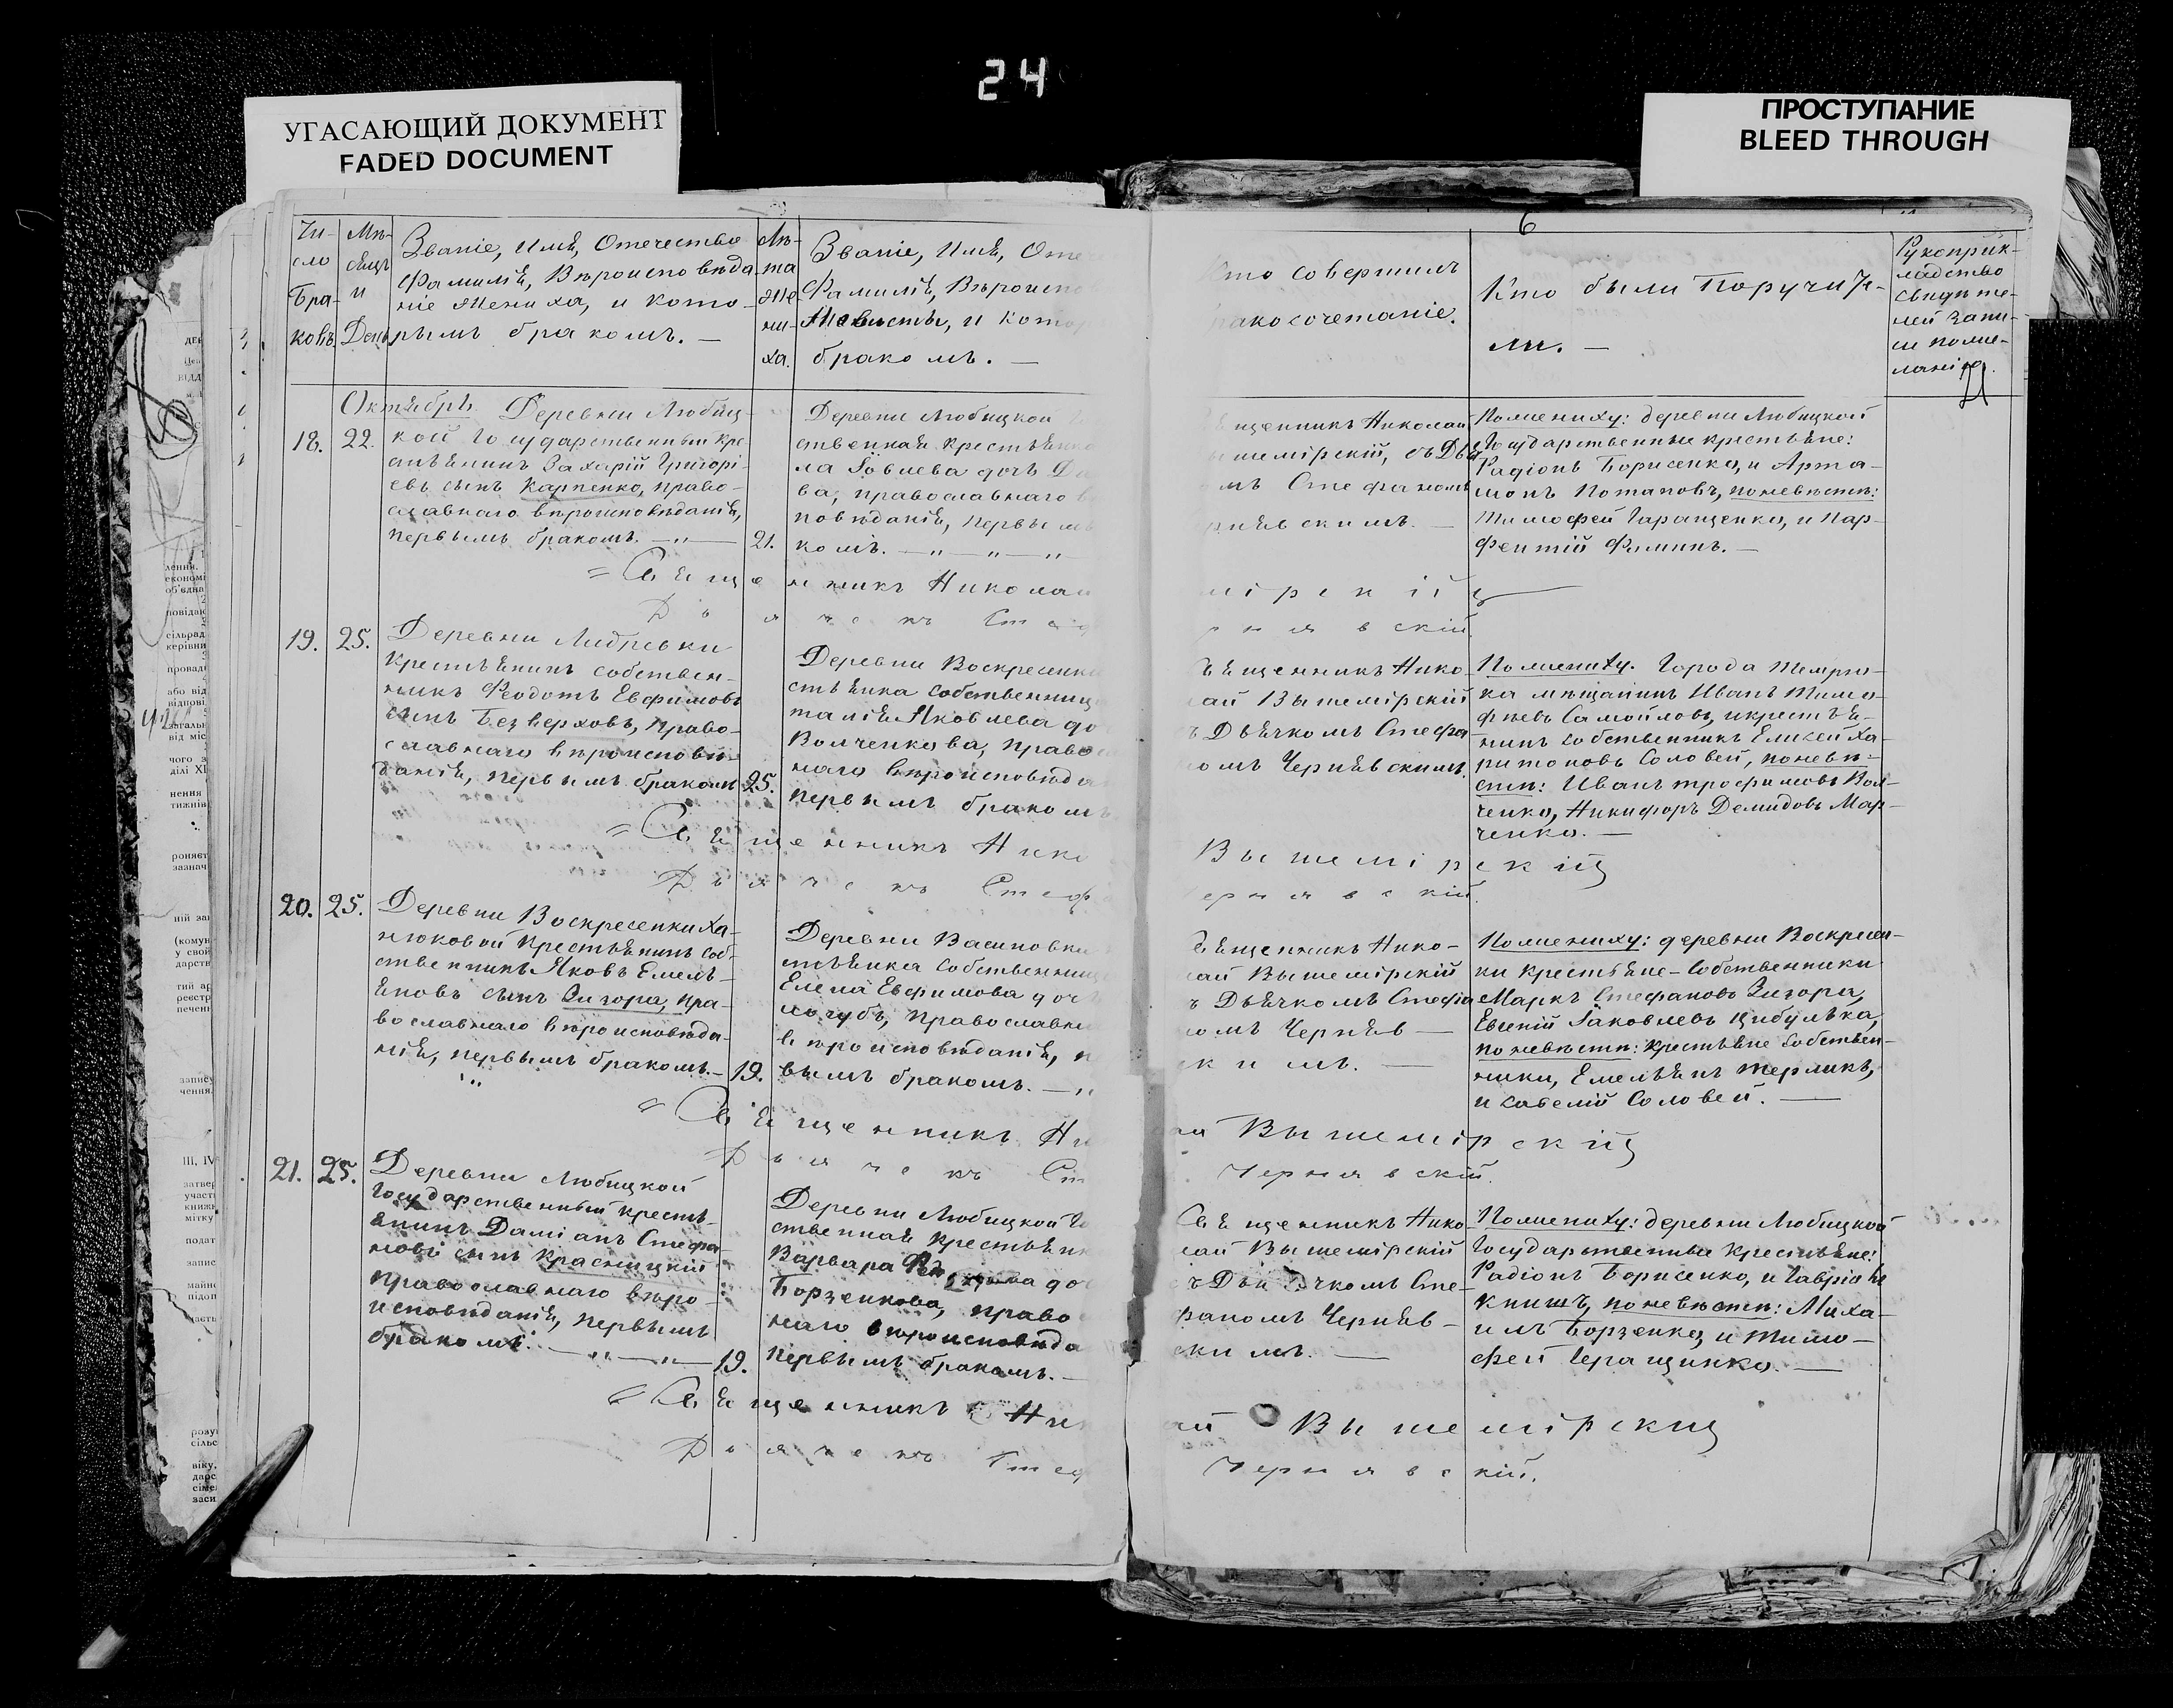 24
УГАСАЮЩИЙ ДОКУМЕНТ
FADED DOCUMENT
ПРОСТУПАНИЕ
BLEED THROUGH
6
Чи-
сло
Бра-
ковъ
Мѣ-
сяцъ
и
День
Званіе, Имя, Отечество
Фамилія, Вѣроисповѣда-
ніе Жениха, и кото-
рымъ бракомъ. —
Лѣ-
та
Же-
ни-
ха.
Званіе, Имя, Оте
Фамилія, Вѣроиспов
Невѣсты, и котор
бракомъ. —
Кто совершилъ
ракосочетаніе.
Кто были Поручите-
ли. —
Рукоприк-
ладство
свидѣте-
лей запи-
си по же-
ланію.
Октябрь
18.
22.
Деревни Любиц-
кой Государственный кре-
стьянинъ Захарій Григорі-
евъ сынъ Карпенко, право-
славнаго вѣроисповѣданія,
первымъ бракомъ. — „ —
21.
Деревни Любицкой
ственная крестьянка
ла Іовлева дочь
ва, православнаго в
повѣданія, первымъ
комъ. — „ — „ — „
щенникъ Николай
шемірскій, съ Дья
мъ Стефаномъ
рнявскимъ. —
По жениху: деревни Любицкой
Государственные крестьяне:
Радіонъ Борисенко, и Арта-
монъ Потаповъ, по невѣстѣ:
Тимофей Гаращенко, и Пар-
фентій Фоминъ. —
= Священникъ Николай
мірскій
Дьячекъ Стеф
рнявскій
19.
25.
Деревни Андревки
крестьянинъ собствен-
никъ Феодотъ Евфимовъ
сынъ Безверховъ, право-
славнаго вѣроисповѣ-
данія, первымъ бракомъ
25.
Деревни Воскресенки
стьянка собственниц
талія Яковлева до
Волченкова, право
наго вѣроисповѣда
первымъ бракомъ
вященникъ Нико-
лай Вышемірскій
ъ Дьячкомъ Стефа
омъ Чернявскимъ.
По жениху. Города Темрю-
ка мѣщанинъ Иванъ Тимо-
фѣевъ Самойловъ, и крестья-
нинъ собственникъ Елисей Ха-
ритоновъ Соловей, по невѣ-
стѣ: Иванъ Трофимовъ Вол-
ченко, Никифоръ Демидовъ Мар-
ченко. —
= Священникъ Нико
Вышемірскій
Дьячекъ Стеф
ернявскій.
20.
25.
Деревни Воскресенки Ха-
нюковой крестьянинъ соб-
ственникъ Яковъ Емель-
яновъ сынъ Зигора, пра-
вославнаго вѣроисповѣда-
нія, первымъ бракомъ. —
19.
Деревни Васиновки
стьянка собственниц
Елена Евфимова доч
логубъ, православна
вѣроисповѣданія, п
вымъ бракомъ. — „
вященникъ Нико-
лай Вышемірскій
ъ Дьячкомъ Стефа
омъ Черняв —
скимъ. —
По жениху: деревни Воскресен-
ки крестьяне-собственники
Маркъ Стефановъ Зигора,
Евгеній Іаковлевъ Цибулька,
по невѣстѣ: крестьяне собствен-
ники, Емельянъ Терликъ,
и Савелій Соловей. —
= Священникъ Ни
ай Вышемірскій
Дьячекъ Ст
Чернявскій.
21.
25.
Деревни Любицкой
Государственный кресть-
янинъ Даміанъ Стефа-
новъ сынъ Красницкій
православнаго вѣро-
исповѣданія, первымъ
бракомъ. — „ — „ —
19.
Деревни Любицкой Го
ственная крестьянк
Варвара до
Борзенкова, право
наго вѣроисповѣда
первымъ бракомъ. —
Священникъ Нико
лай Вышемірскій
съ Дьячкомъ Сте-
фаномъ Черняв-
скимъ. —
По жениху: деревни Любицкой
Государственные крестьяне:
Радіонъ Борисенко, и Гавріилъ
Книшъ, по невѣстѣ: Миха-
илъ Борзенко, и Тимо-
фей Геращинко. —
= Священникъ Ни
ай Вышемірскій
Дьячекъ Стеф
Чернявскій.